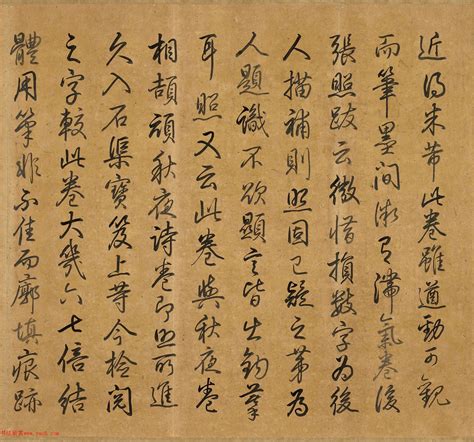 近得米芾此卷雖遒勁可觀
而筆墨間有滯氣卷後
張照跋云微惜損數字為後
人描補則照固已疑之第為
人題識不欲顯言皆出鈎摹
耳照又云此卷與秋夜卷
相頡頏秋夜詩卷即照所進
久入石渠寶笈上等今檢閱
之字較此卷大幾六七倍結
體用筆非不佳而廓填痕跡